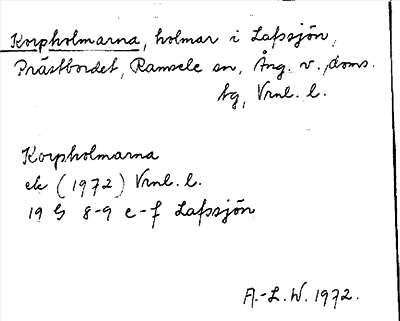 Korpholmarna, holmar i Lafssjön,
Prästbordet, Ramsele sn, Ång. v. doms.
tg, Vrnl. l.
Korpholmarna
ek (1972) Vrnl. l.
19 G 8-9 e-f Lafssjön
A.-L. W. 1972.